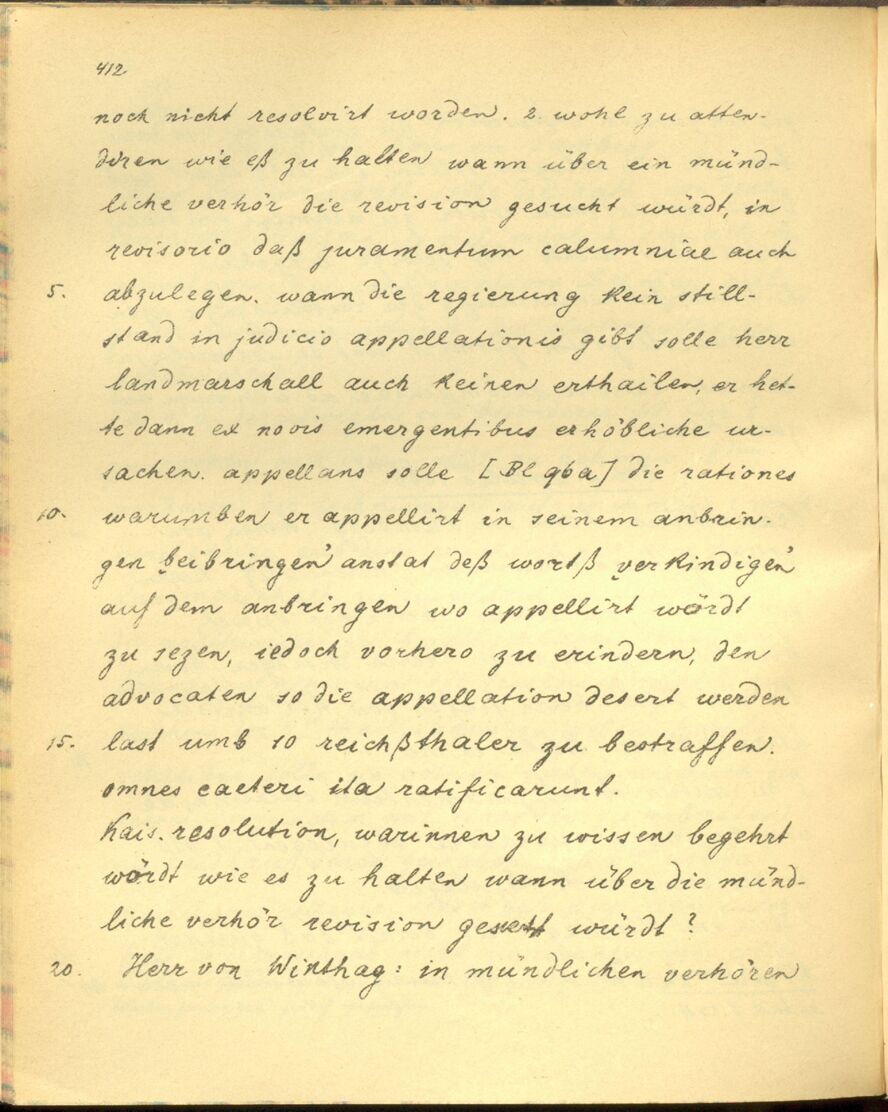 412
noch nicht resolvirt worden. 2. wohl zu atten-
diren wie eß zu halten wann über ein münd-
liche verhör die revision gesucht würdt, in
revisorio daß juramentum calumniae auch
5. abzulegen. wann die regierung kein still-
stand in judicio appellationis gibt solle herr
landmarschall auch keinen erthailen, er het-
te dann ex novis emergentibus erhöbliche ur-
sachen. appellans solle [Bl 96a] die rationes
10. warumben er appellirt in seinem anbrin-
gen „beibringen" anstat deß wortß „verkindigen"
auf dem anbringen wo appellirt wördt
zu sezen, iedoch vorhero zu erindern, den
advocaten so die appellation desert werden
15. last umb 10 reichßthaler zu bestraffen.
omnes caeteri ita ratificarunt.
Kais. resolution, warinnen zu wissen begehrt
wördt wie es zu halten wann über die münd-
liche verhör revision würdt?
20. Herr von Winthag: in mündlichen verhören